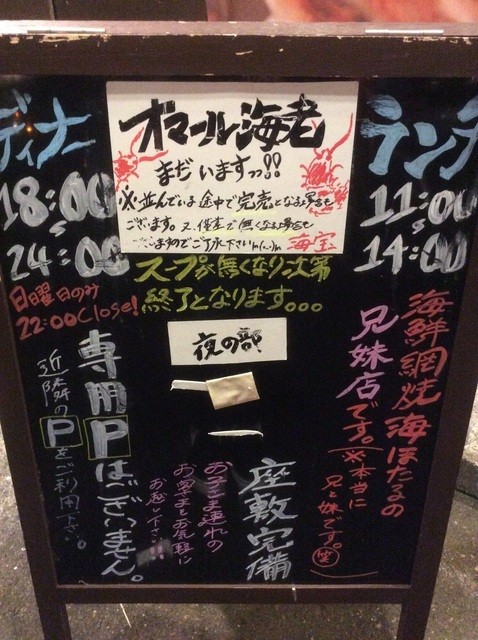 オマール海老
まだいますっ!!
※並んでいる途中で完売となる場合も
ございます。又、僅差で無くなる場合
ございますのでご了承下さいm(_ _)m
海宝
ランチ
11:00
14:00
ディナー
18:00
24:00
日曜日のみ
22:00Close!
スープが無くなり次第
終了となります。。。
夜の部
海鮮網焼 海ほたるの
兄妹店です。(※本当に
兄と妹です。笑)
座敷完備
お子さま連れの
お客さまもお気軽に
お越し下さい!!!
専用Pはございません。
近隣のPをご利用下さい。